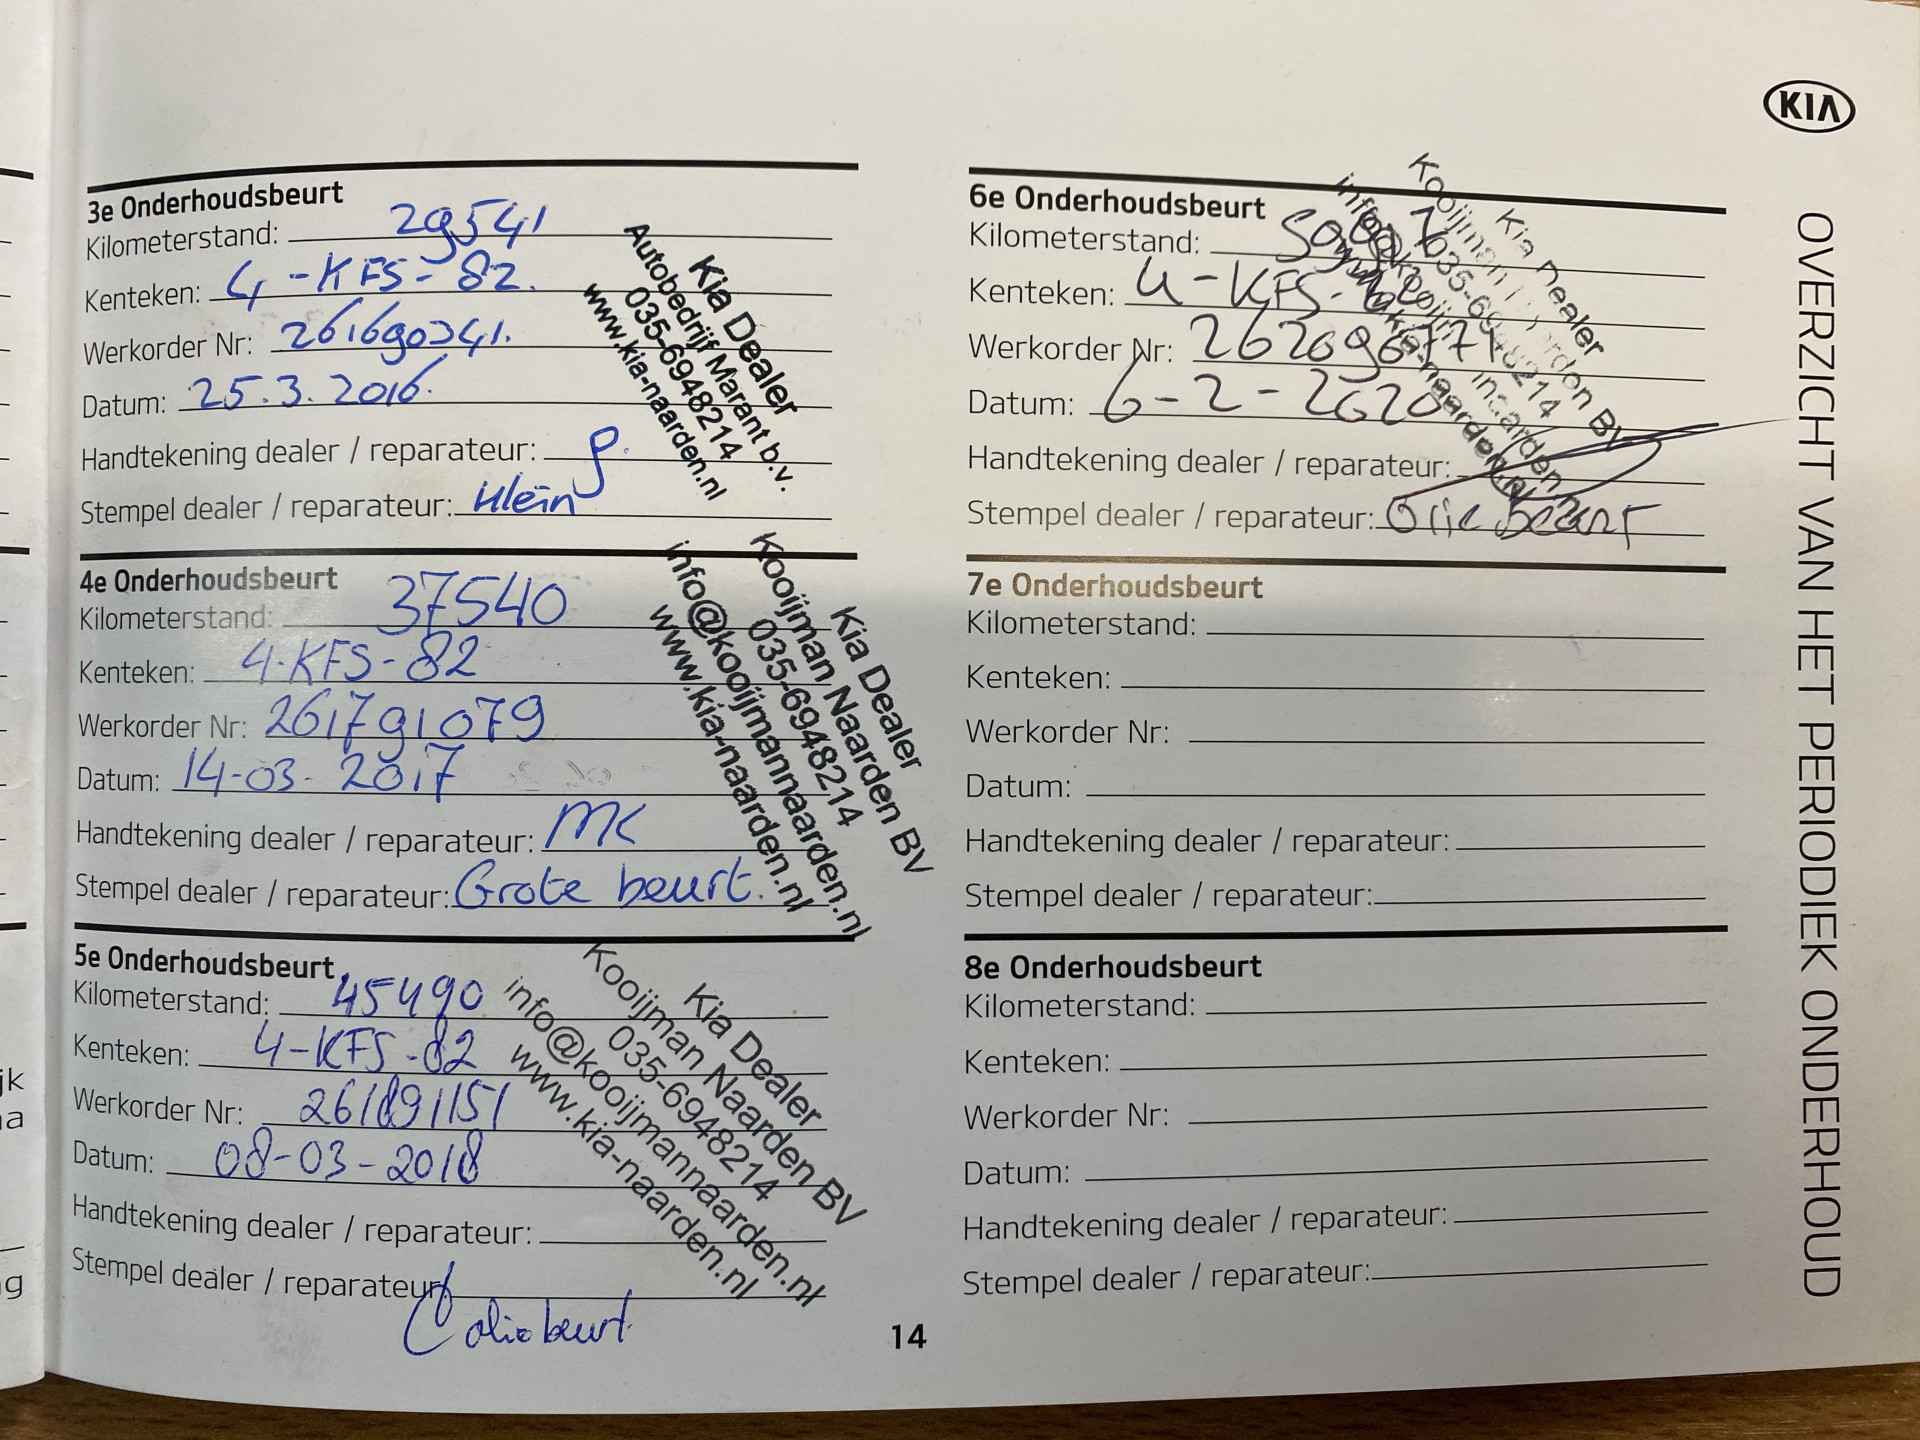 KIA
OVERZICHT VAN HET PERIODIEK ONDERHOUD
3e Onderhoudsbeurt
Kilometerstand: 29541
Kenteken: 4-KFS-82.
Werkorder Nr: 261690341.
Datum: 25.3.2016.
Handtekening dealer / reparateur:
Stempel dealer / reparateur: klein
Kia Dealer
Autobedrijf Marant b.v.
035-6948214
www.kia-naarden.nl
4e Onderhoudsbeurt
Kilometerstand: 37540
Kenteken: 4-KFS-82
Werkorder Nr: 261791079
Datum: 14-03-2017
Handtekening dealer / reparateur: MK
Stempel dealer / reparateur: Grote beurt.
Kia Dealer
Kooijman Naarden BV
035-6948214
info@kooijmannaarden.nl
www.kia-naarden.nl
5e Onderhoudsbeurt
Kilometerstand: 45490
Kenteken: 4-KFS-82
Werkorder Nr: 261891151
Datum: 08-03-2018
Handtekening dealer / reparateur:
Stempel dealer / reparateur:
oliebeurt
Kia Dealer
Kooijman Naarden BV
035-6948214
info@kooijmannaarden.nl
www.kia-naarden.nl
6e Onderhoudsbeurt
Kilometerstand:
Kenteken: 4-KFS-82
Werkorder Nr:
Datum: 6-2-2020
Handtekening dealer / reparateur:
Stempel dealer / reparateur: Olie beurt
Kia Dealer
035-6948214
7e Onderhoudsbeurt
Kilometerstand:
Kenteken:
Werkorder Nr:
Datum:
Handtekening dealer / reparateur:
Stempel dealer / reparateur:
8e Onderhoudsbeurt
Kilometerstand:
Kenteken:
Werkorder Nr:
Datum:
Handtekening dealer / reparateur:
Stempel dealer / reparateur:
14